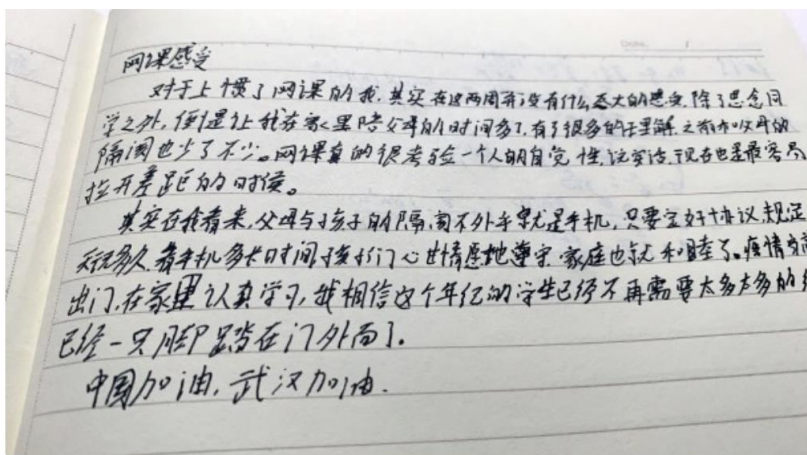 网课感受
对于上惯了网课的我,其实在这两周并没有什么太大的感受,除了思念同
学之外,倒是让我在家里陪父母的时间多了,有了很多的理解,之前和父母的
隔阂也少了不少。网课真的很考验一个人的自觉性,说实话,现在也是最容易
拉开差距的时候。
其实在我看来,父母与孩子的隔阂不外乎就是手机,只要定好协议,规定
天玩多久,看手机多长时间,孩子们心甘情愿地遵守,家庭也就和睦了。疫情
出门,在家里认真学习,我相信这个年纪的学生已经不再需要太多太多的
已经一只脚踏在门外面了。
中国加油,武汉加油.